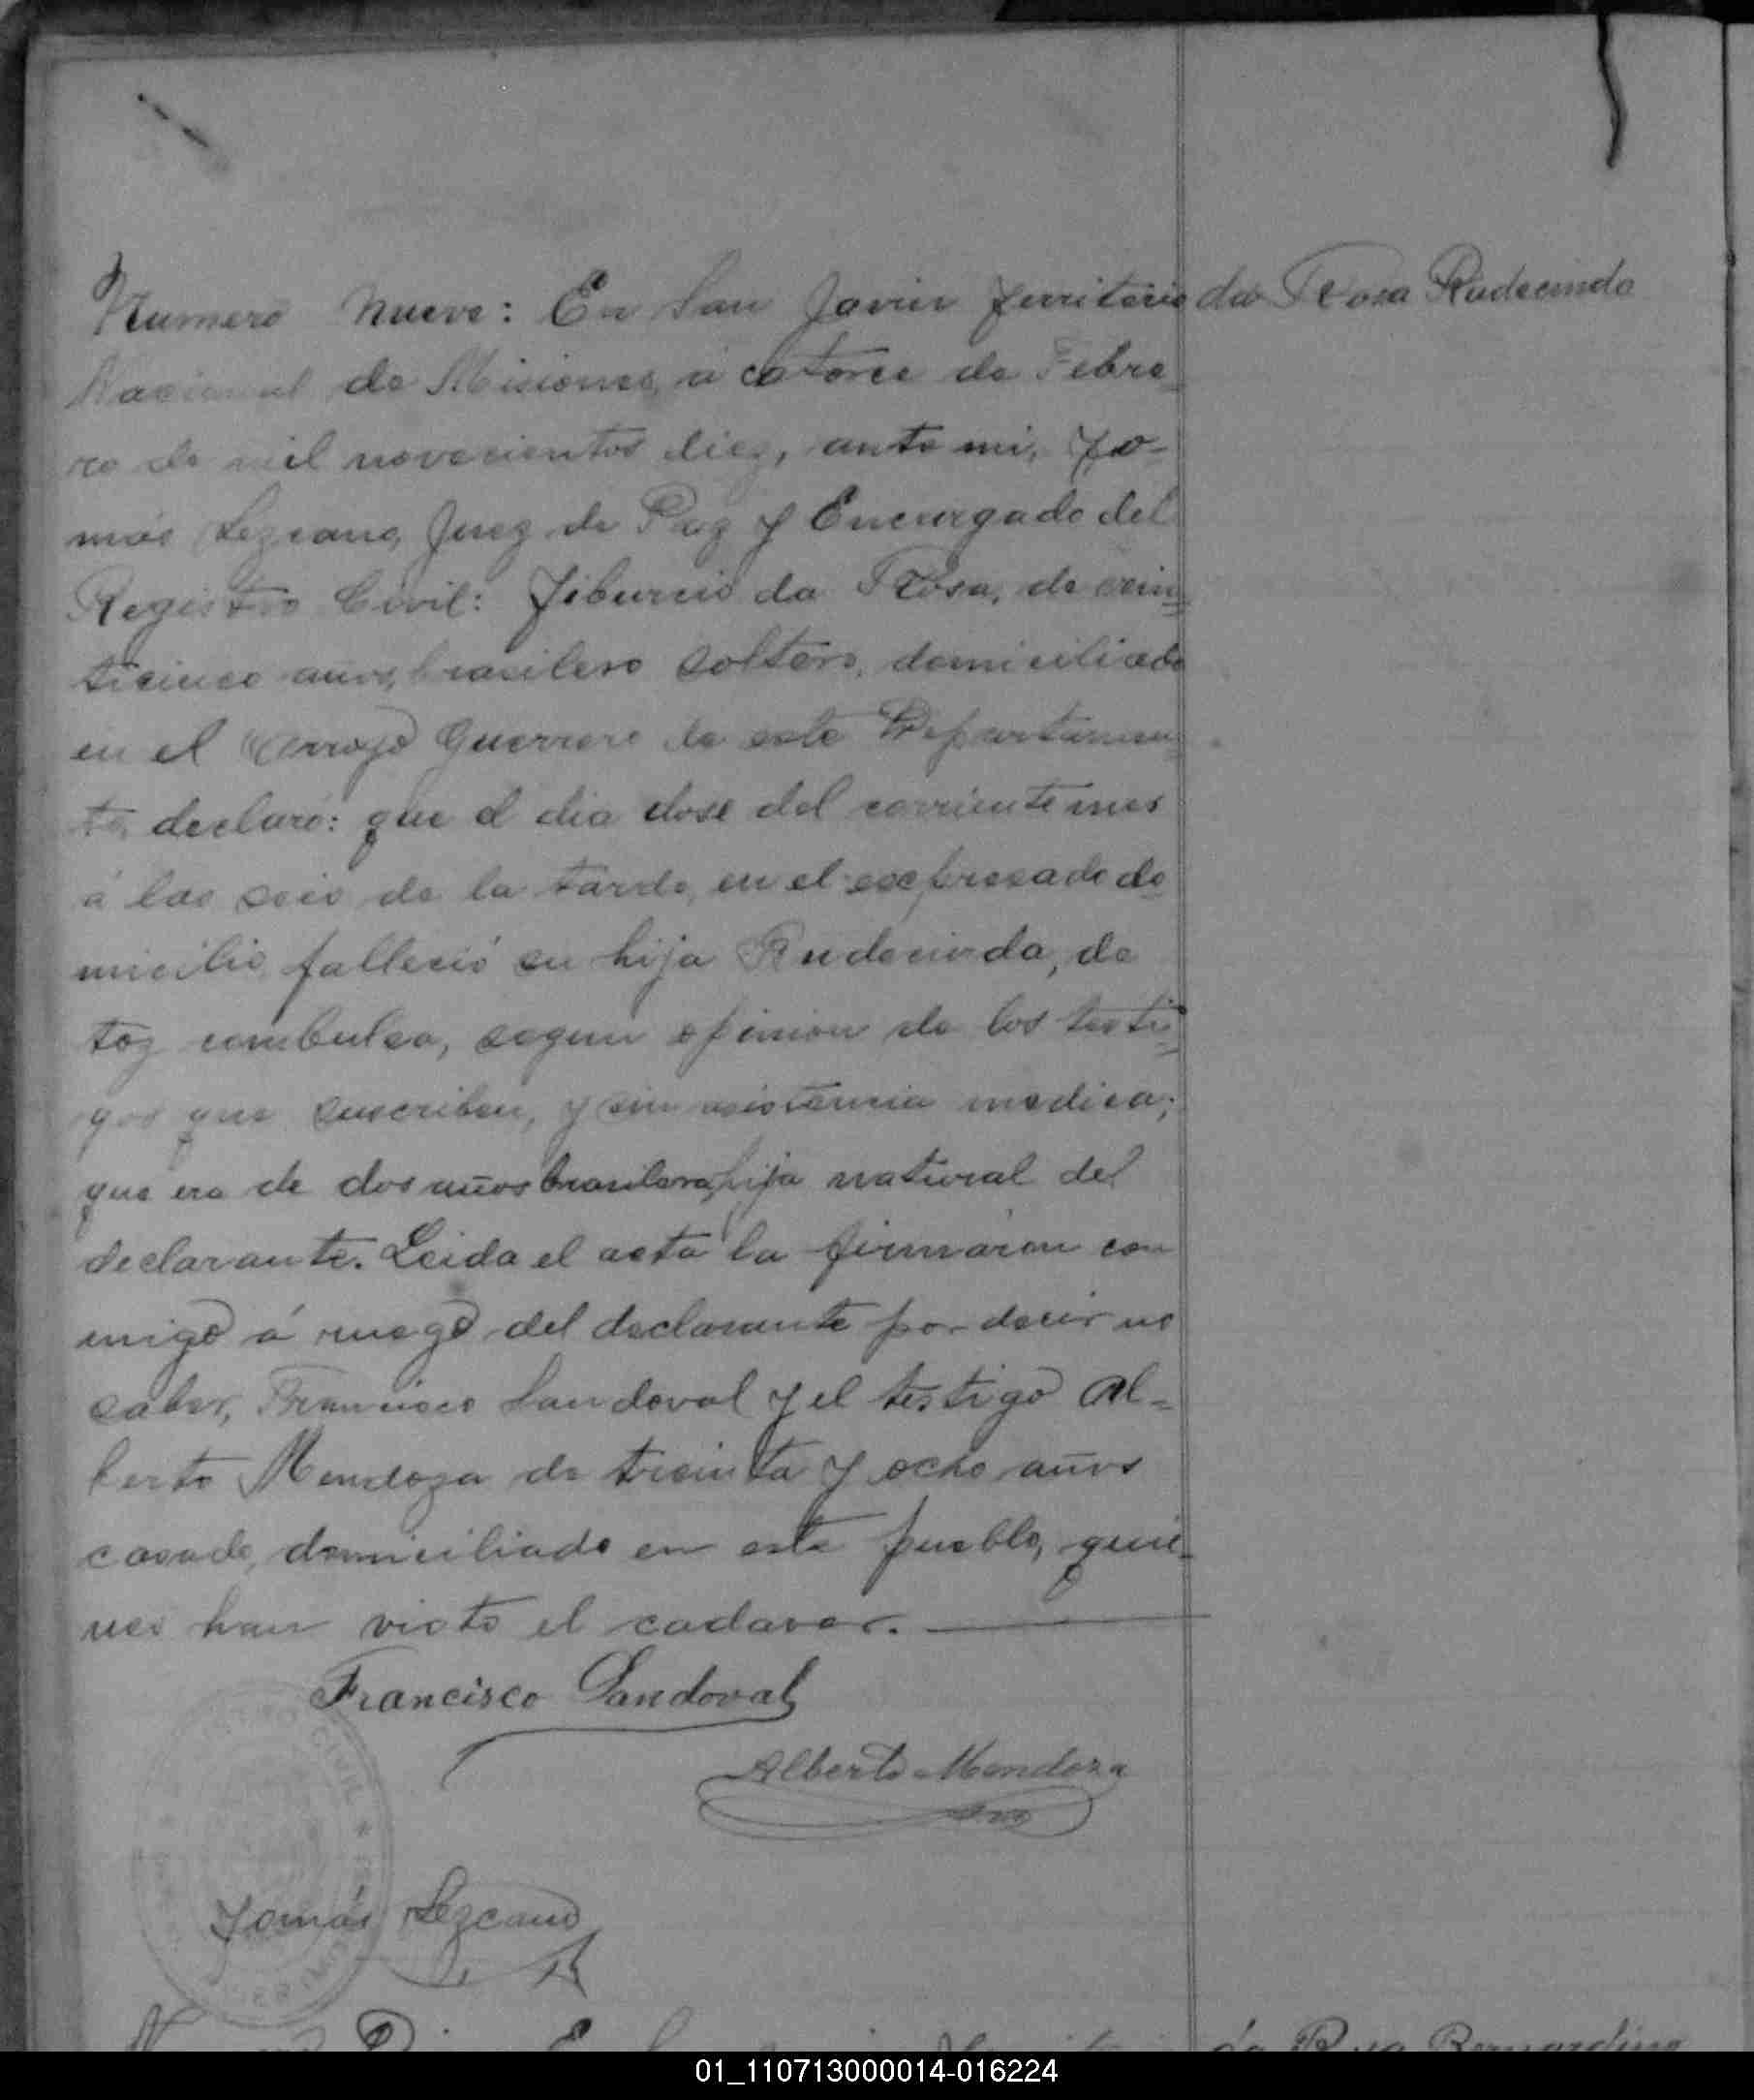 Numero nueve: En San Javier Territorio
da Rosa Rudecinda
Nacional de Misiones, á catorce de Febre-
ro de mil novecientos diez, ante mi, To-
más Lezcano, Juez de Paz y Encargado del
Registro Civil: Tiburcio da Rosa, de vein-
ticinco años, brasilero soltero, domiciliado
en el Arroyo Guerrero de este Departamen-
to, declaró: que el dia dose del corriente mes
á las seis de la tarde, en el expresado do-
micilio, falleció su hija Rudecinda, de
toz combulsa, segun opinion de los testi-
gos que suscriben, y sin asistencia medica;
que era de dos años brasilera, hija natural del
declarante. Leida el acta la firmaron con
migo á ruego del declarante por decir no
saber, Francisco Sandoval y el testigo Al-
berto Mendoza de treinta y ocho años
casado, domiciliado en este pueblo, quie-
nes han visto el cadaver.
Francisco Sandoval
Alberto Mendoza
Tomás Lezcano
CIVIL
da Rosa Bernardino
01_110713000014-016224